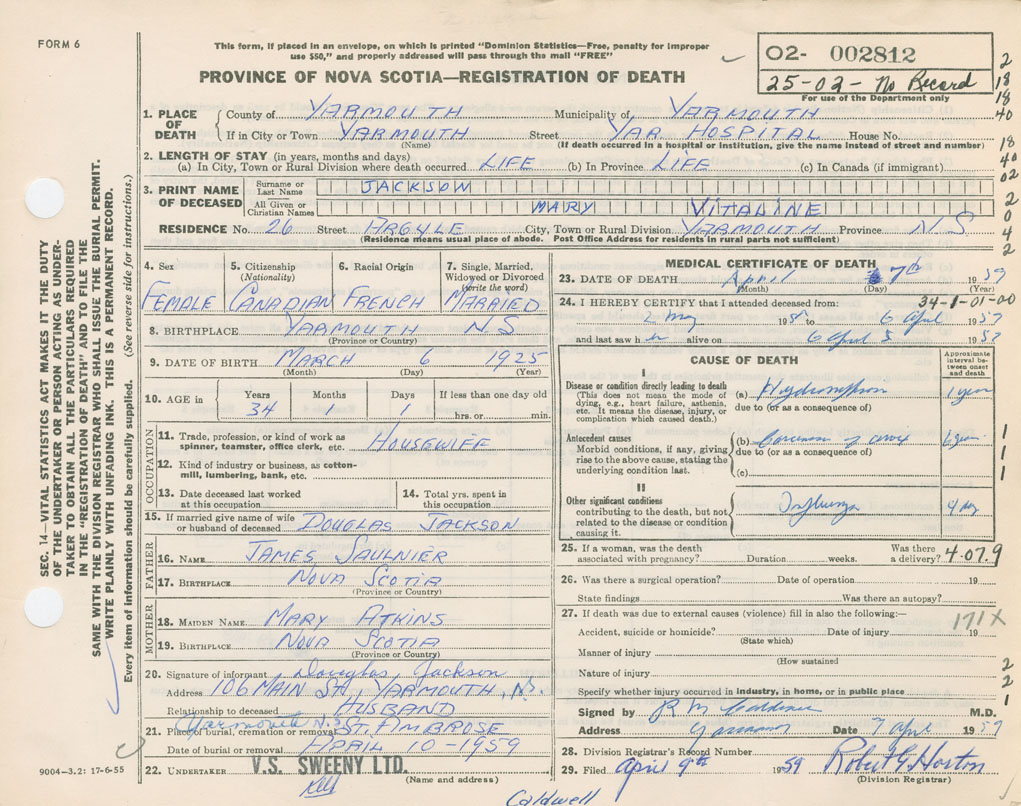 FORM 6
This form, if placed in an envelope, on which is printed "Dominion Statistics—Free, penalty for improper
use $50," and properly addressed will pass through the mail "FREE"
PROVINCE OF NOVA SCOTIA—REGISTRATION OF DEATH
02- 002812
25-02- No Record
For use of the Department only
2
18
18
40
18
40
02
2
0
4
2
1. PLACE OF DEATH
County of YARMOUTH Municipality of YARMOUTH
If in City or Town YARMOUTH Street YAR HOSPITAL House No.
(Name) (If death occurred in a hospital or institution, give the name instead of street and number)
2. LENGTH OF STAY (in years, months and days)
(a) In City, Town or Rural Division where death occurred LIFE (b) In Province LIFE (c) In Canada (if immigrant)
3. PRINT NAME OF DECEASED
Surname or Last Name JACKSON
All Given or Christian Names MARY VITALINE
RESIDENCE No. 26 Street ARGYLE City, Town or Rural Division YARMOUTH Province N.S
(Residence means usual place of abode. Post Office Address for residents in rural parts not sufficient)
SEC. 14—VITAL STATISTICS ACT MAKES IT THE DUTY
OF THE UNDERTAKER OR PERSON ACTING AS UNDER-
TAKER TO OBTAIN ALL THE PARTICULARS REQUIRED
IN THE "REGISTRATION OF DEATH" AND TO FILE THE
SAME WITH THE DIVISION REGISTRAR WHO SHALL ISSUE THE BURIAL PERMIT.
WRITE PLAINLY WITH UNFADING INK. THIS IS A PERMANENT RECORD.
Every item of information should be carefully supplied. (See reverse side for instructions.)
4. Sex
FEMALE
5. Citizenship
(Nationality)
CANADIAN
6. Racial Origin
FRENCH
7. Single, Married,
Widowed or Divorced
(write the word)
MARRIED
8. BIRTHPLACE YARMOUTH N S
(Province or Country)
9. DATE OF BIRTH MARCH 6 1925
(Month) (Day) (Year)
10. AGE in Years Months Days If less than one day old
34 1 1 hrs. or min.
OCCUPATION
11. Trade, profession, or kind of work as
spinner, teamster, office clerk, etc. HOUSEWIFE
12. Kind of industry or business, as cotton-
mill, lumbering, bank, etc.
13. Date deceased last worked
at this occupation
14. Total yrs. spent in
this occupation
15. If married give name of wife
or husband of deceased DOUGLAS JACKSON
FATHER
16. NAME JAMES SAULNIER
17. BIRTHPLACE NOVA SCOTIA
(Province or Country)
MOTHER
18. MAIDEN NAME MARY ATKINS
19. BIRTHPLACE NOVA SCOTIA
(Province or Country)
20. Signature of informant Douglas Jackson
Address 106 MAIN ST., YARMOUTH, N.S.
Relationship to deceased HUSBAND
Yarmouth N.S
21. Place of burial, cremation or removal ST. AMBROSE
Date of burial or removal APRIL 10-1959
22. UNDERTAKER V.S. SWEENY LTD.
(Name and address)
9004—3.2: 17-6-55
Caldwell
MEDICAL CERTIFICATE OF DEATH
23. DATE OF DEATH April 7th 1959
(Month) (Day) (Year)
34-1-01-00
24. I HEREBY CERTIFY that I attended deceased from:
2 May 19 to 6 April 1959
and last saw her alive on 6 April 1959
CAUSE OF DEATH
Approximate
interval be-
tween onset
and death
I
Disease or condition directly leading to death
(This does not mean the mode of
dying, e.g., heart failure, asthenia,
etc. It means the disease, injury, or
complication which caused death.)
(a) 1 year
due to (or as a consequence of)
Antecedent causes
Morbid conditions, if any, giving
rise to the above cause, stating the
underlying condition last.
(b) Carcinoma of cervix
due to (or as a consequence of)
(c)
1
1
1
II
Other significant conditions
contributing to the death, but not
related to the disease or condition
causing it.
Influenza
25. If a woman, was the death
associated with pregnancy? Duration weeks. Was there
a delivery? 4.07.9
26. Was there a surgical operation? Date of operation 19
State findings Was there an autopsy?
27. If death was due to external causes (violence) fill in also the following:—
171X
Accident, suicide or homicide? Date of injury 19
(State which)
Manner of injury
(How sustained
Nature of injury
2
2
1
Specify whether injury occurred in industry, in home, or in public place
Signed by R M M.D.
Address Yarmouth Date 7 April 1959
28. Division Registrar's Record Number
29. Filed April 9th 1959 Robert G. Horton
(Division Registrar)